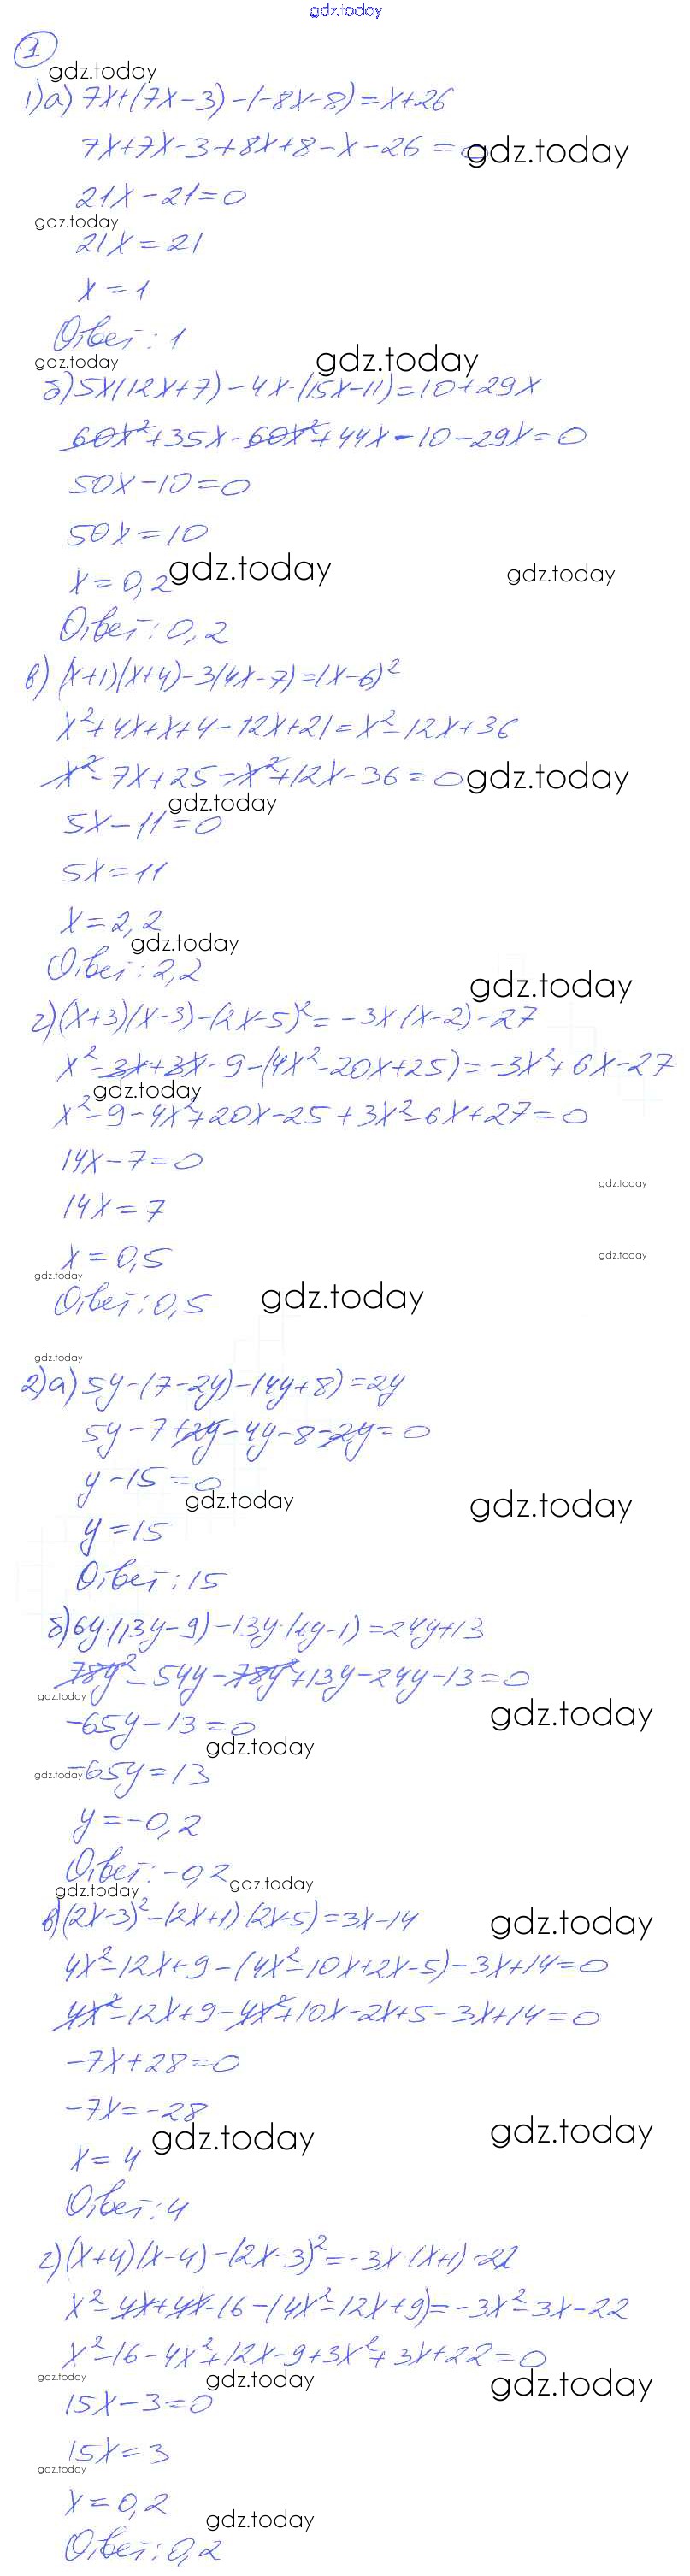 gdz.today
1
gdz.today
1) а) 7x+(7x-3)-(-8x-8)=x+26
7x+7x-3+8x+8-x-26=0
gdz.today
21x-21=0
gdz.today
21x=21
x=1
Ответ: 1
gdz.today
gdz.today
б) 5x(12x+7)-4x·(15x-11)=10+29x
60x²+35x-60x²+44x-10-29x=0
50x-10=0
50x=10
x=0,2
gdz.today
gdz.today
Ответ: 0,2
в) (x+1)(x+4)-3(4x-7)=(x-6)²
x²+4x+x+4-12x+21=x²-12x+36
x²-7x+25-x²+12x-36=0
gdz.today
gdz.today
5x-11=0
5x=11
x=2,2
gdz.today
Ответ: 2,2
gdz.today
г) (x+3)(x-3)-(2x-5)²=-3x(x-2)-27
x²-3x+3x-9-(4x²-20x+25)=-3x²+6x-27
gdz.today
x²-9-4x²+20x-25+3x²-6x+27=0
14x-7=0
gdz.today
14x=7
x=0,5
gdz.today
gdz.today
Ответ: 0,5
gdz.today
gdz.today
2) а) 5y-(7-2y)-(4y+8)=2y
5y-7+2y-4y-8-2y=0
y-15=0
gdz.today
gdz.today
y=15
Ответ: 15
б) 6y·(13y-9)-13y·(6y-1)=24y+13
78y²-54y-78y²+13y-24y-13=0
gdz.today
gdz.today
-65y-13=0
gdz.today
gdz.today
-65y=13
y=-0,2
Ответ: -0,2
gdz.today
gdz.today
в) (2x-3)²-(2x+1)·(2x-5)=3x-14
gdz.today
4x²-12x+9-(4x²-10x+2x-5)-3x+14=0
4x²-12x+9-4x²+10x-2x+5-3x+14=0
-7x+28=0
-7x=-28
x=4
gdz.today
gdz.today
Ответ: 4
г) (x+4)(x-4)-(2x-3)²=-3x·(x+1)-22
x²-4x+4x-16-(4x²-12x+9)=-3x²-3x-22
x²-16-4x²+12x-9+3x²+3x+22=0
gdz.today
gdz.today
gdz.today
15x-3=0
15x=3
gdz.today
x=0,2
gdz.today
Ответ: 0,2